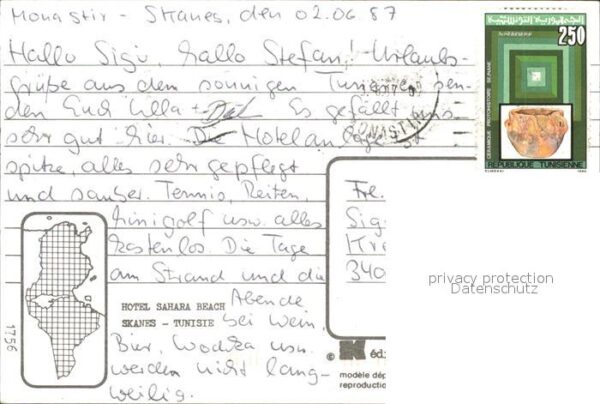 Monastir - Skanes, den 02.06.87
Hallo Sigi, hallo Stefan! Urlaubs-
grüße aus dem sonnigen Tunesien sen-
den Euch Ulla + Es gefällt uns
sehr gut hier. Die Hotelanlage ist
spitze, alles sehr gepflegt
und sauber. Tennis, Reiten,
Minigolf usw. alles
kostenlos. Die Tage
am Strand und die
Abende
bei Wein,
Bier, Wodka usw.
werden nicht lang-
weilig.
HOTEL SAHARA BEACH
SKANES - TUNISIE
1756
Sig
Kre
340
© édi
modèle dép
reproductio
الجمهورية التونسية
250
CERAMIQUE PROTOHISTOIRE
REPUBLIQUE TUNISIENNE
privacy protection
Datenschutz